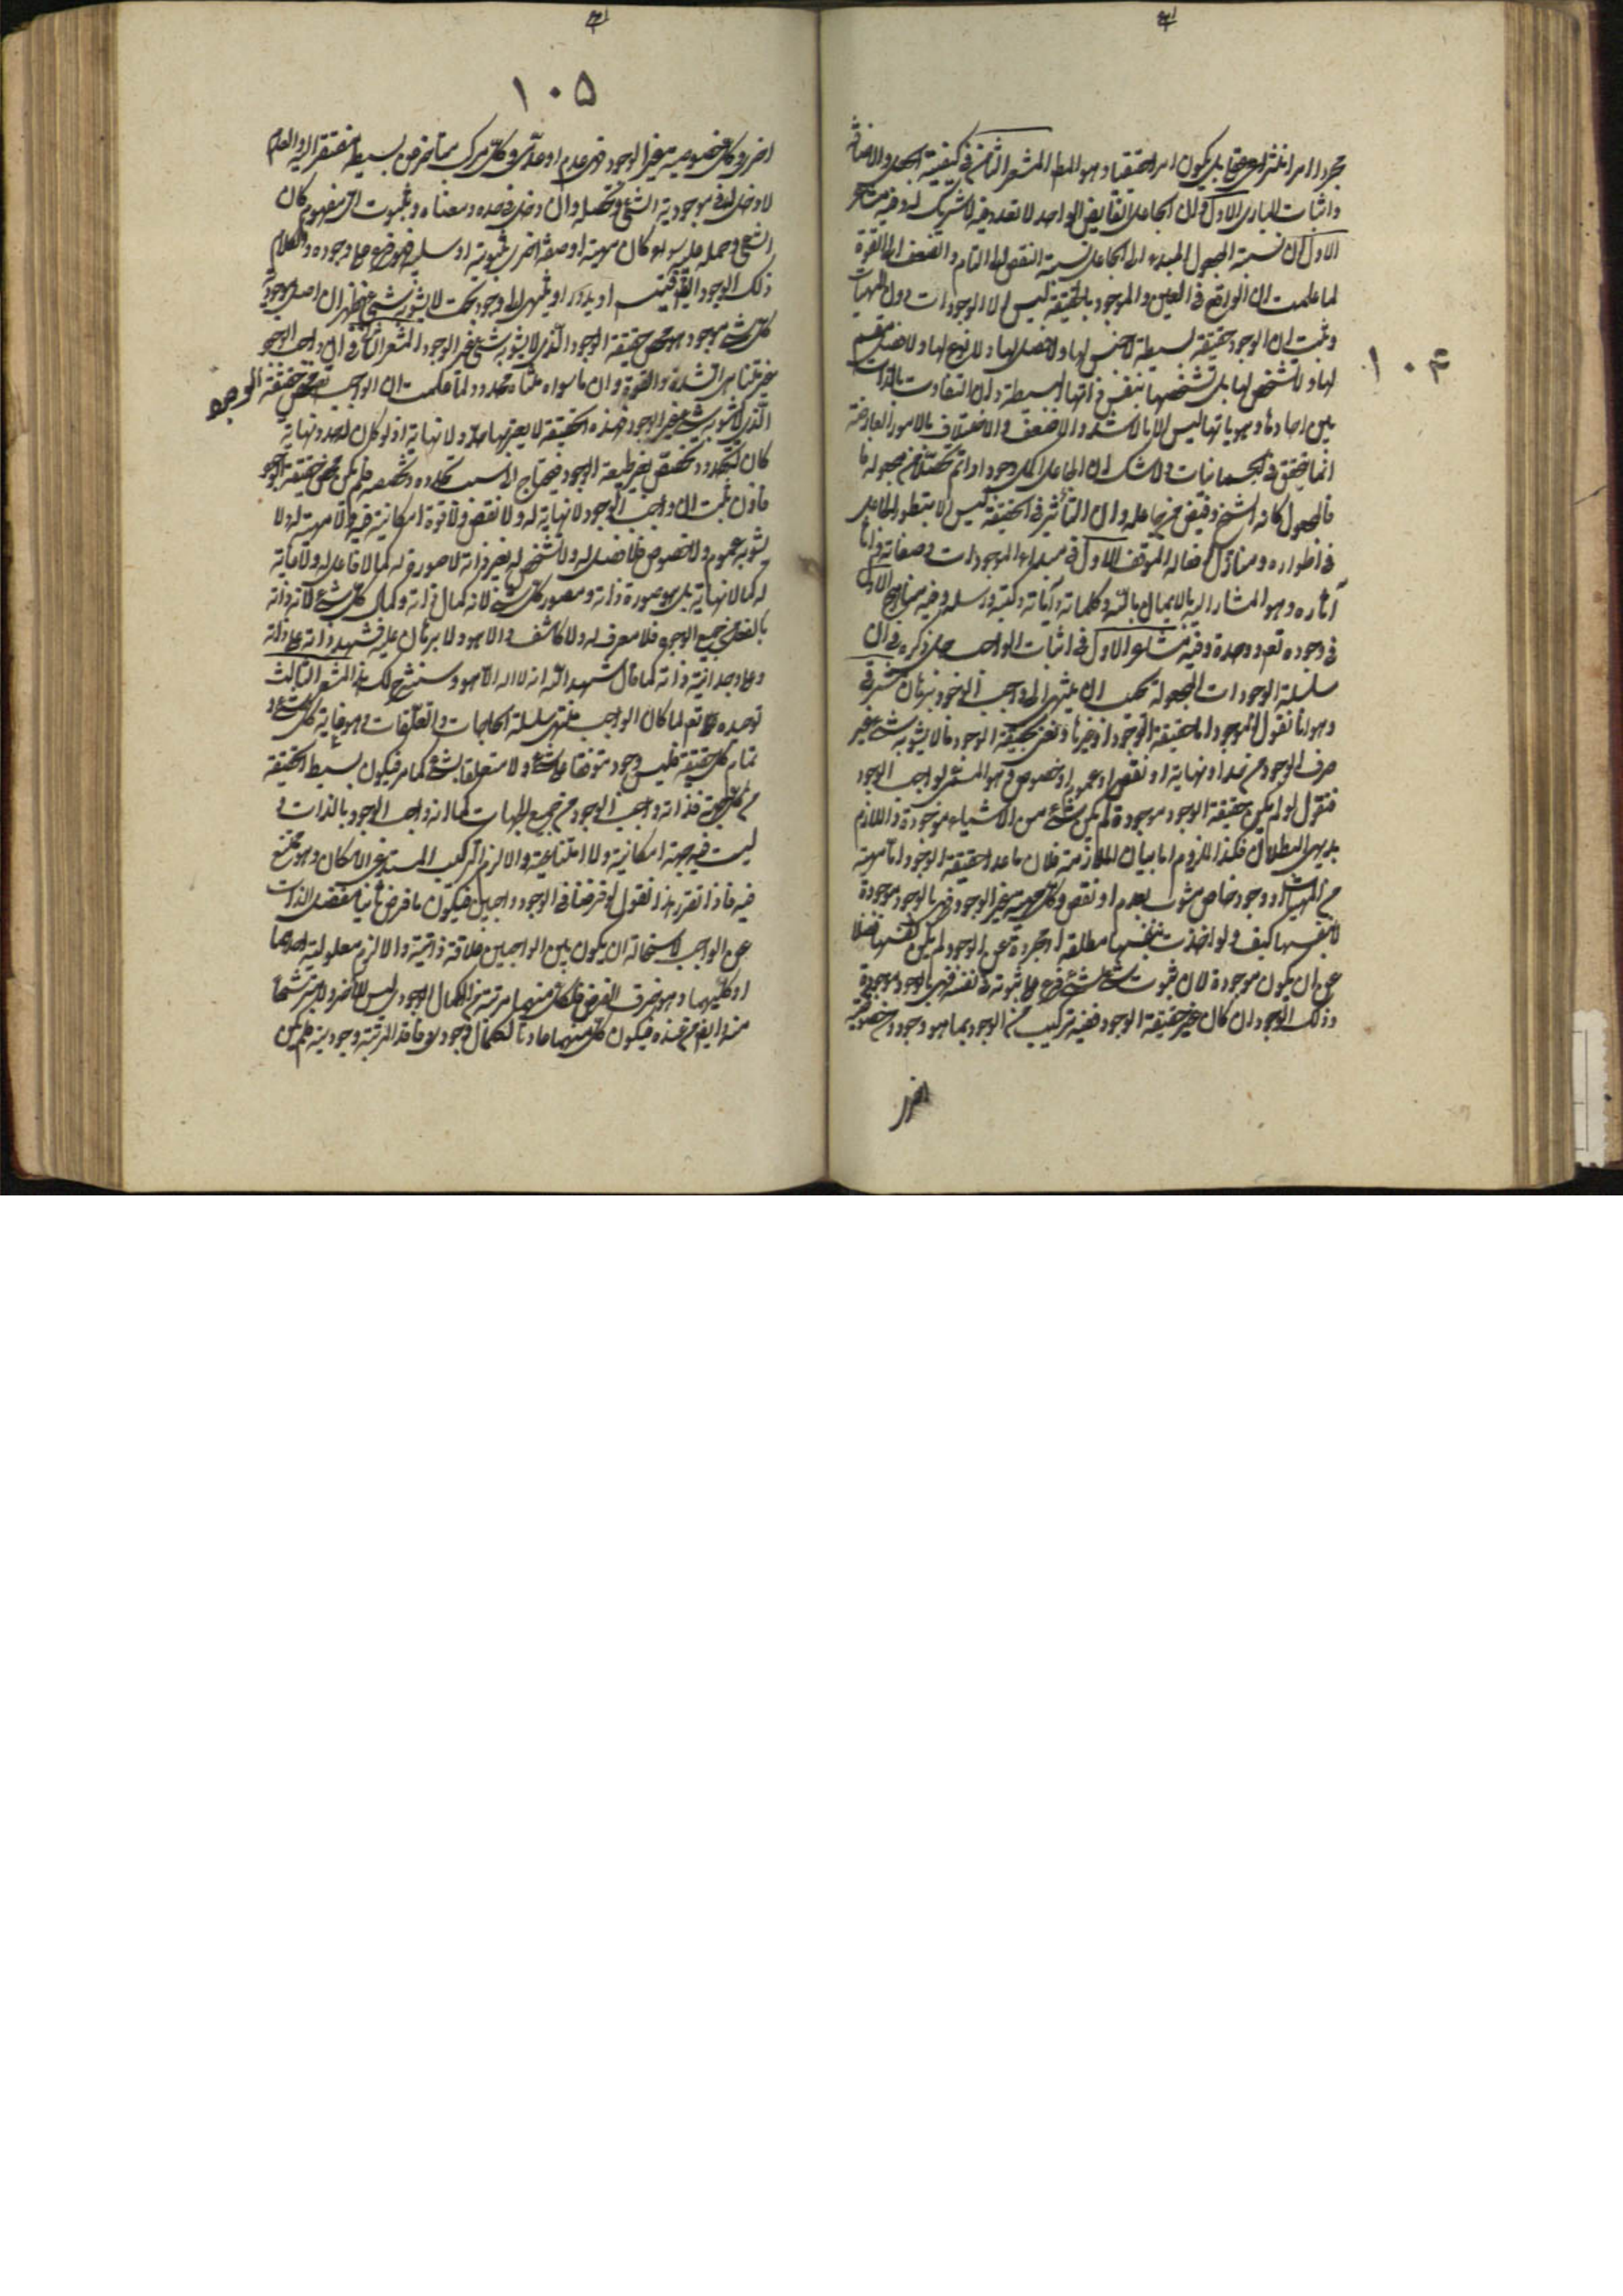 ١٠٤
مجرد امر انتزاعی عقلی بل یکون امرا حقیقیا و هو المط المشعر الثامن فی کیفیة الجعل والافاضة
و اثبات الباری الاول و ان الجاعل الفایض الواحد لا تعدد فیه لا شریک له و فیه مشاعر
الاول ان نسبة المجعول المبدع الی الجاعل نسبة النقص الی التمام و الضعف الی القوة
لما علمت ان الواقع فی العین و الموجود بالحقیقة لیس الا الوجودات دون المهیات
و ثبت ان الوجود حقیقة بسیطة لا جنس لها و لا فصل لها و لا نوع لها و لا فصل مقسم
لها و لا تشخص لها بل تشخصها بنفس ذاتها البسیطة و ان التفاوت بالذات
بین احادها و هویاتها لیس الا بالاشد و الاضعف و الاختلاف بالامور العارضة
انما یتحقق فی الجسمانیات و لا شک ان الجاعل اکمل وجودا و اتم تحصلا من مجعوله
فالمجعول کانه رشح و فیض من جاعله و ان التأثیر فی الحقیقة لیس الا بتطور الجاعل
فی اطواره و منازل افعاله الموقف الاول فی مبداء الموجودات و صفاته و
آثاره و هو المشار الیه بالایمال بالله و کلماته و آیاته و کتبه و رسله و فیه مناهج الاول
فی وجوده تع و وحدة و فیه مشاعر الاول فی اثبات الواجب جل ذکره و فی ان
سلسلة الوجودات المجعولة یجب ان ینتهی الی واجب الوجود برهان مشرقی
و هو انا نقول الموجود اما حقیقة الوجود او غیرها و نعنی بحقیقة الوجود ما لا یشوبه شئ غیر
صرف الوجود من حد او نهایة او نقص او عموم او خصوص و هو المسمی بواجب الوجود
فنقول لو لم یکن حقیقة الوجود موجودة لم یکن شئ من الاشیاء موجودة و اللازم
بدیهی البطلان فکذا الملزوم اما بیان الملازمة فلان ما عدا حقیقة الوجود اما مهیة
من المهیات او وجود خاص مشوب بعدم او نقص و کل مهیة غیر الوجود فهی بالوجود موجودة
لا بنفسها کیف و لو اخذت بنفسها مطلقة او مجردة عن الوجود لم یکن نفسها فضلا
عن ان یکون موجودة لان ثبوت شئ لشئ فرع علی ثبوته فی نفسه فهی بالوجود موجودة
و ذلک الوجود ان کان غیر حقیقة الوجود ففیه ترکیب من الوجود بما هو وجود و من خصوصیة
اخری
١٠٥
اخری و کل خصوصیة غیر الوجود فهی عدم او عدمی و کل مرکب متاخر عن بسیطه مفتقر الیه و العدم
لا دخل له فی موجودیة الشئ و تحصله و ان دخل فی حده و معناه و ثبوت ای مفهوم کان
لشئ و حمله علیه سواء کان مهیة او صفة اخری ثبوتیة او سلبیة فهو فرع علی وجوده و الکلام
فی ذلک الوجود ایض فیتسلسل او یدور او ینتهی الی وجود بحت لا یشوبه شئ فظهر ان اصل موجودیة
کل شئ موجود هو محض حقیقة الوجود الذی لا یشوبه شئ غیر الوجود المشعر الثانی فی ان واجب الوجود
غیر متناهی الشدة و القوة و ان ما سواه متناه محدود لما علمت ان الواجب تع محض حقیقة الوجود
الذی لا یشوبه شئ غیر الوجود فهذه الحقیقة لا یعتریها حد و لا نهایة اذ لو کان له حد و نهایة
کان له تحدد و تخصص بغیر طبیعة الوجود فیحتاج الی سبب یحدده و یخصصه فلم یکن محض حقیقة الوجود
فاذن ثبت ان واجب الوجود لا نهایة له و لا نقص و لا قوة امکانیة فیه و لا مهیة له و لا
یشوبه عموم و لا خصوص فلا فصل له و لا تشخص له بغیر ذاته لا صورة له کما لا فاعل له و لا غایة
له کما لا نهایة بل هو صورة ذاته و مصور کل شئ لانه کمال ذاته و کمال کل شئ لانه ذاته
بالفعل من جمیع الوجوه فلا معرف له و لا کاشف له الا هو و لا برهان علیه فشهد ذاته علی ذاته
و علی وحدانیة ذاته کما قال شهد الله انه لا اله الا هو و سنشرح لک هذا المشعر الثالث
توحیده تع لما کان الواجب منتهی سلسلة الحاجات و التعلقات و هو غایة کل شئ و
تمام کل حقیقة فلیس وجود متوقفا علی شئ و لا متعلقا بشئ کما مر فیکون بسیط الحقیقة
من کل جهة فذاته واجب الوجود من جمیع الجهات کما انه واجب الوجود بالذات و
لیست فیه جهة امکانیة و لا امتناعیة و الا لزم الترکیب المستدعی الامکان و هو ممتنع
فیه فاذا تقرر هذا فنقول لو فرضنا فی الوجود واجبین فیکون ما فرض ثانیا منفصل الذات
عن الواجب لاستحالة ان یکون بین الواجبین علاقة ذاتیة و الا لزم معلولیة احدهما
او کلیهما و هو خرق الفرض فلکل منهما مرتبة من الکمال الوجودی لیس للاخر و لا مترشحا
منه و فایضا من عنده فیکون کل منهما عادما لکمال وجودی و فاقدا لمرتبة وجودیة فلم یکن